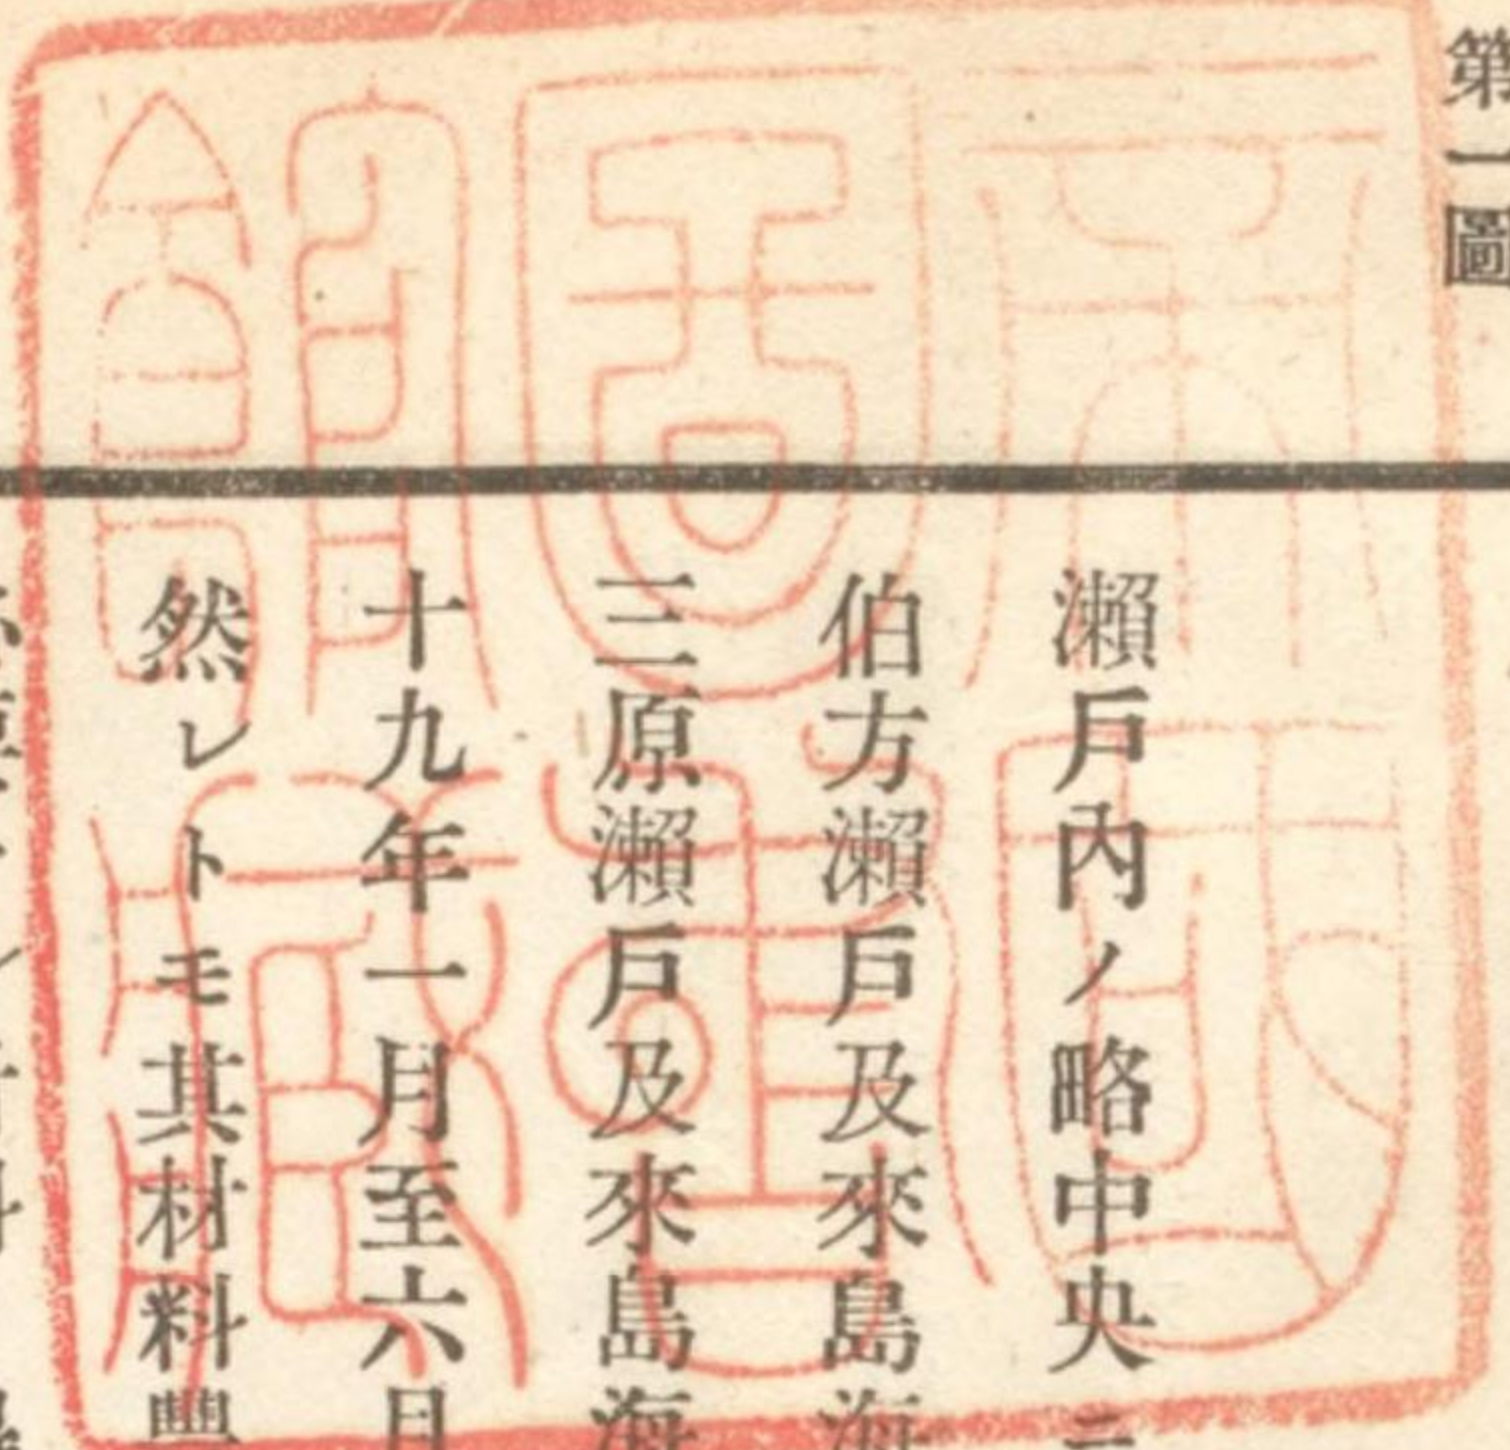 第一圖
瀨戶內ノ略中央ニ
伯方瀨戶及來島海
三原瀨戶及來島海
十九年一月至六月
然レトモ其材料豐
帝國圖書館藏